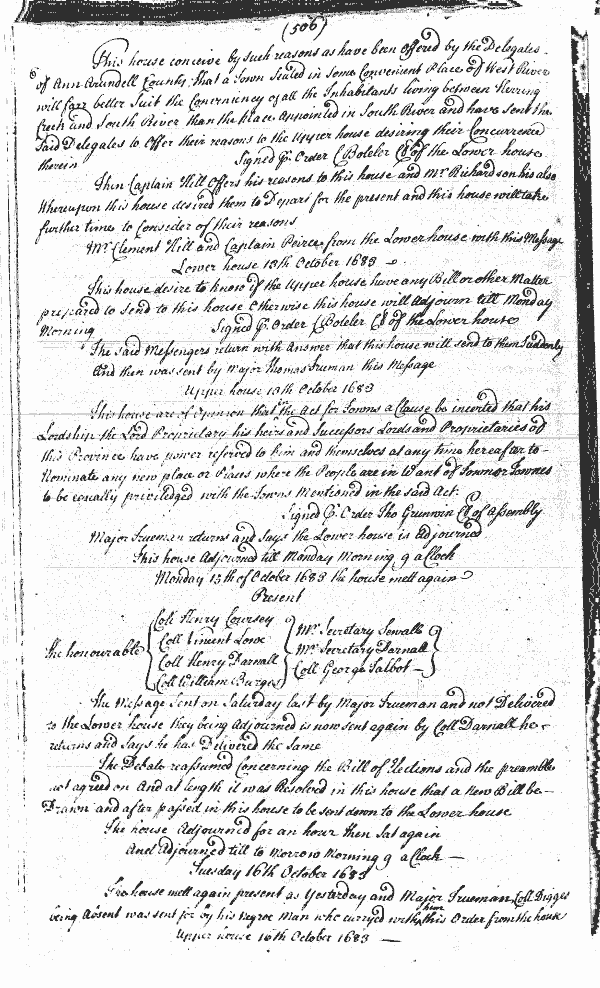 (506)
This house conceive by such reasons as have been offered by the Delegates
of Ann Arundell County that a Town Seated in Some Convenient Place of West River
will farr better Suit the Conveniency of all the Inhabitants living between Herring
Creek and South River than the Place appointed in South River and have sent the
Said Delegates to Offer their reasons to the Upper house desiring their Concurrence
therein Signed P. Order C Boteler Cl of the Lower house
Then Captain Hill Offers his reasons to this house and Mr Richardson his also
Whereupon this house desired them to Depart for the present and this house will take
further time to Consider of their reasons
Mr Clement Hill and Captain Peirce from the Lower house with this Message
Lower house 13th October 1683
This house desire to know if the Upper house have any Bill or other Matter
prepared to send to this house Otherwise this house will Adjourn till Monday
Morning Signed P. Order C Boteler Cl of the Lower house
The Said Messengers return with Answer that this house will send to them Suddenly
And then was sent by Major Thomas Trueman this Message
Upper house 13th October 1683
This house are of Opinion that the Act for Towns a Clause be inserted that his
Lordship the Lord Proprietary his heirs and Successors Lords and Proprietaries of
this Province have power referved to him and themselves at any time hereafter to
Nominate any new place or Places where the People are in Want of Town or Townes
to be equally priviledged with the Towns Mentioned in the said Act.
Signed P. Order Tho Grunwin Cl of Assembly
Major Trueman returns and Says the Lower house is Adjourned
This house Adjourned till Monday Morning 9 a Clock
Monday 15th of October 1683 the house mett again
Present
The honourable
Coll Henry Coursey
Coll Vincent Lowe
Coll Henry Darnall
Coll William Burges
Mr Secretary Sewall
Mr Secretary Darnall
Coll George Talbot
The Message Sent on Saturday last by Major Trueman and not Delivered
to the Lower house they being Adjourned is now sent again by Coll Darnall he
returns and Says he has Delivered the Same
The Debate reassumed Concerning the Bill of Elections and the preamble
not agreed on And at length it was Resolved in this house that a New Bill be
Drawn and after passed in this house to be sent down to the Lower house
The house Adjourned for an hour then Sat again
And Adjourned till to Morrow Morning 9 a Clock
Tuesday 16th October 1683
The house mett again present as Yesterday and Major Trueman, Coll Digges
being Absent was sent for by his Negroe Man who carryed with him this Order from the house
Upper house 16th October 1683